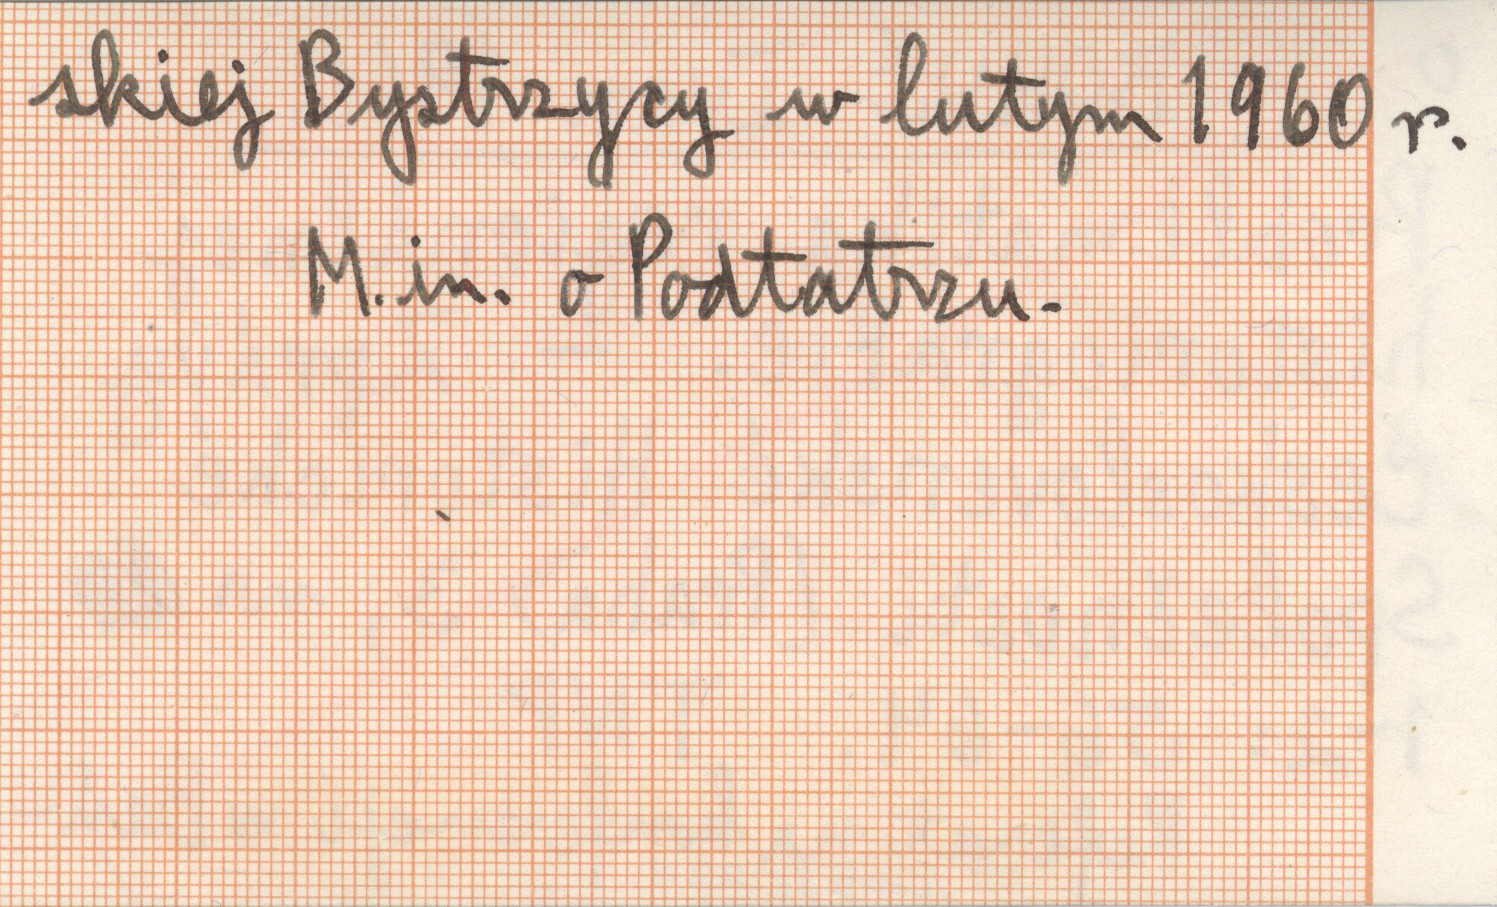 skiej Bystrzycy w lutym 1960 r.
M.in. o Podtatrzu.